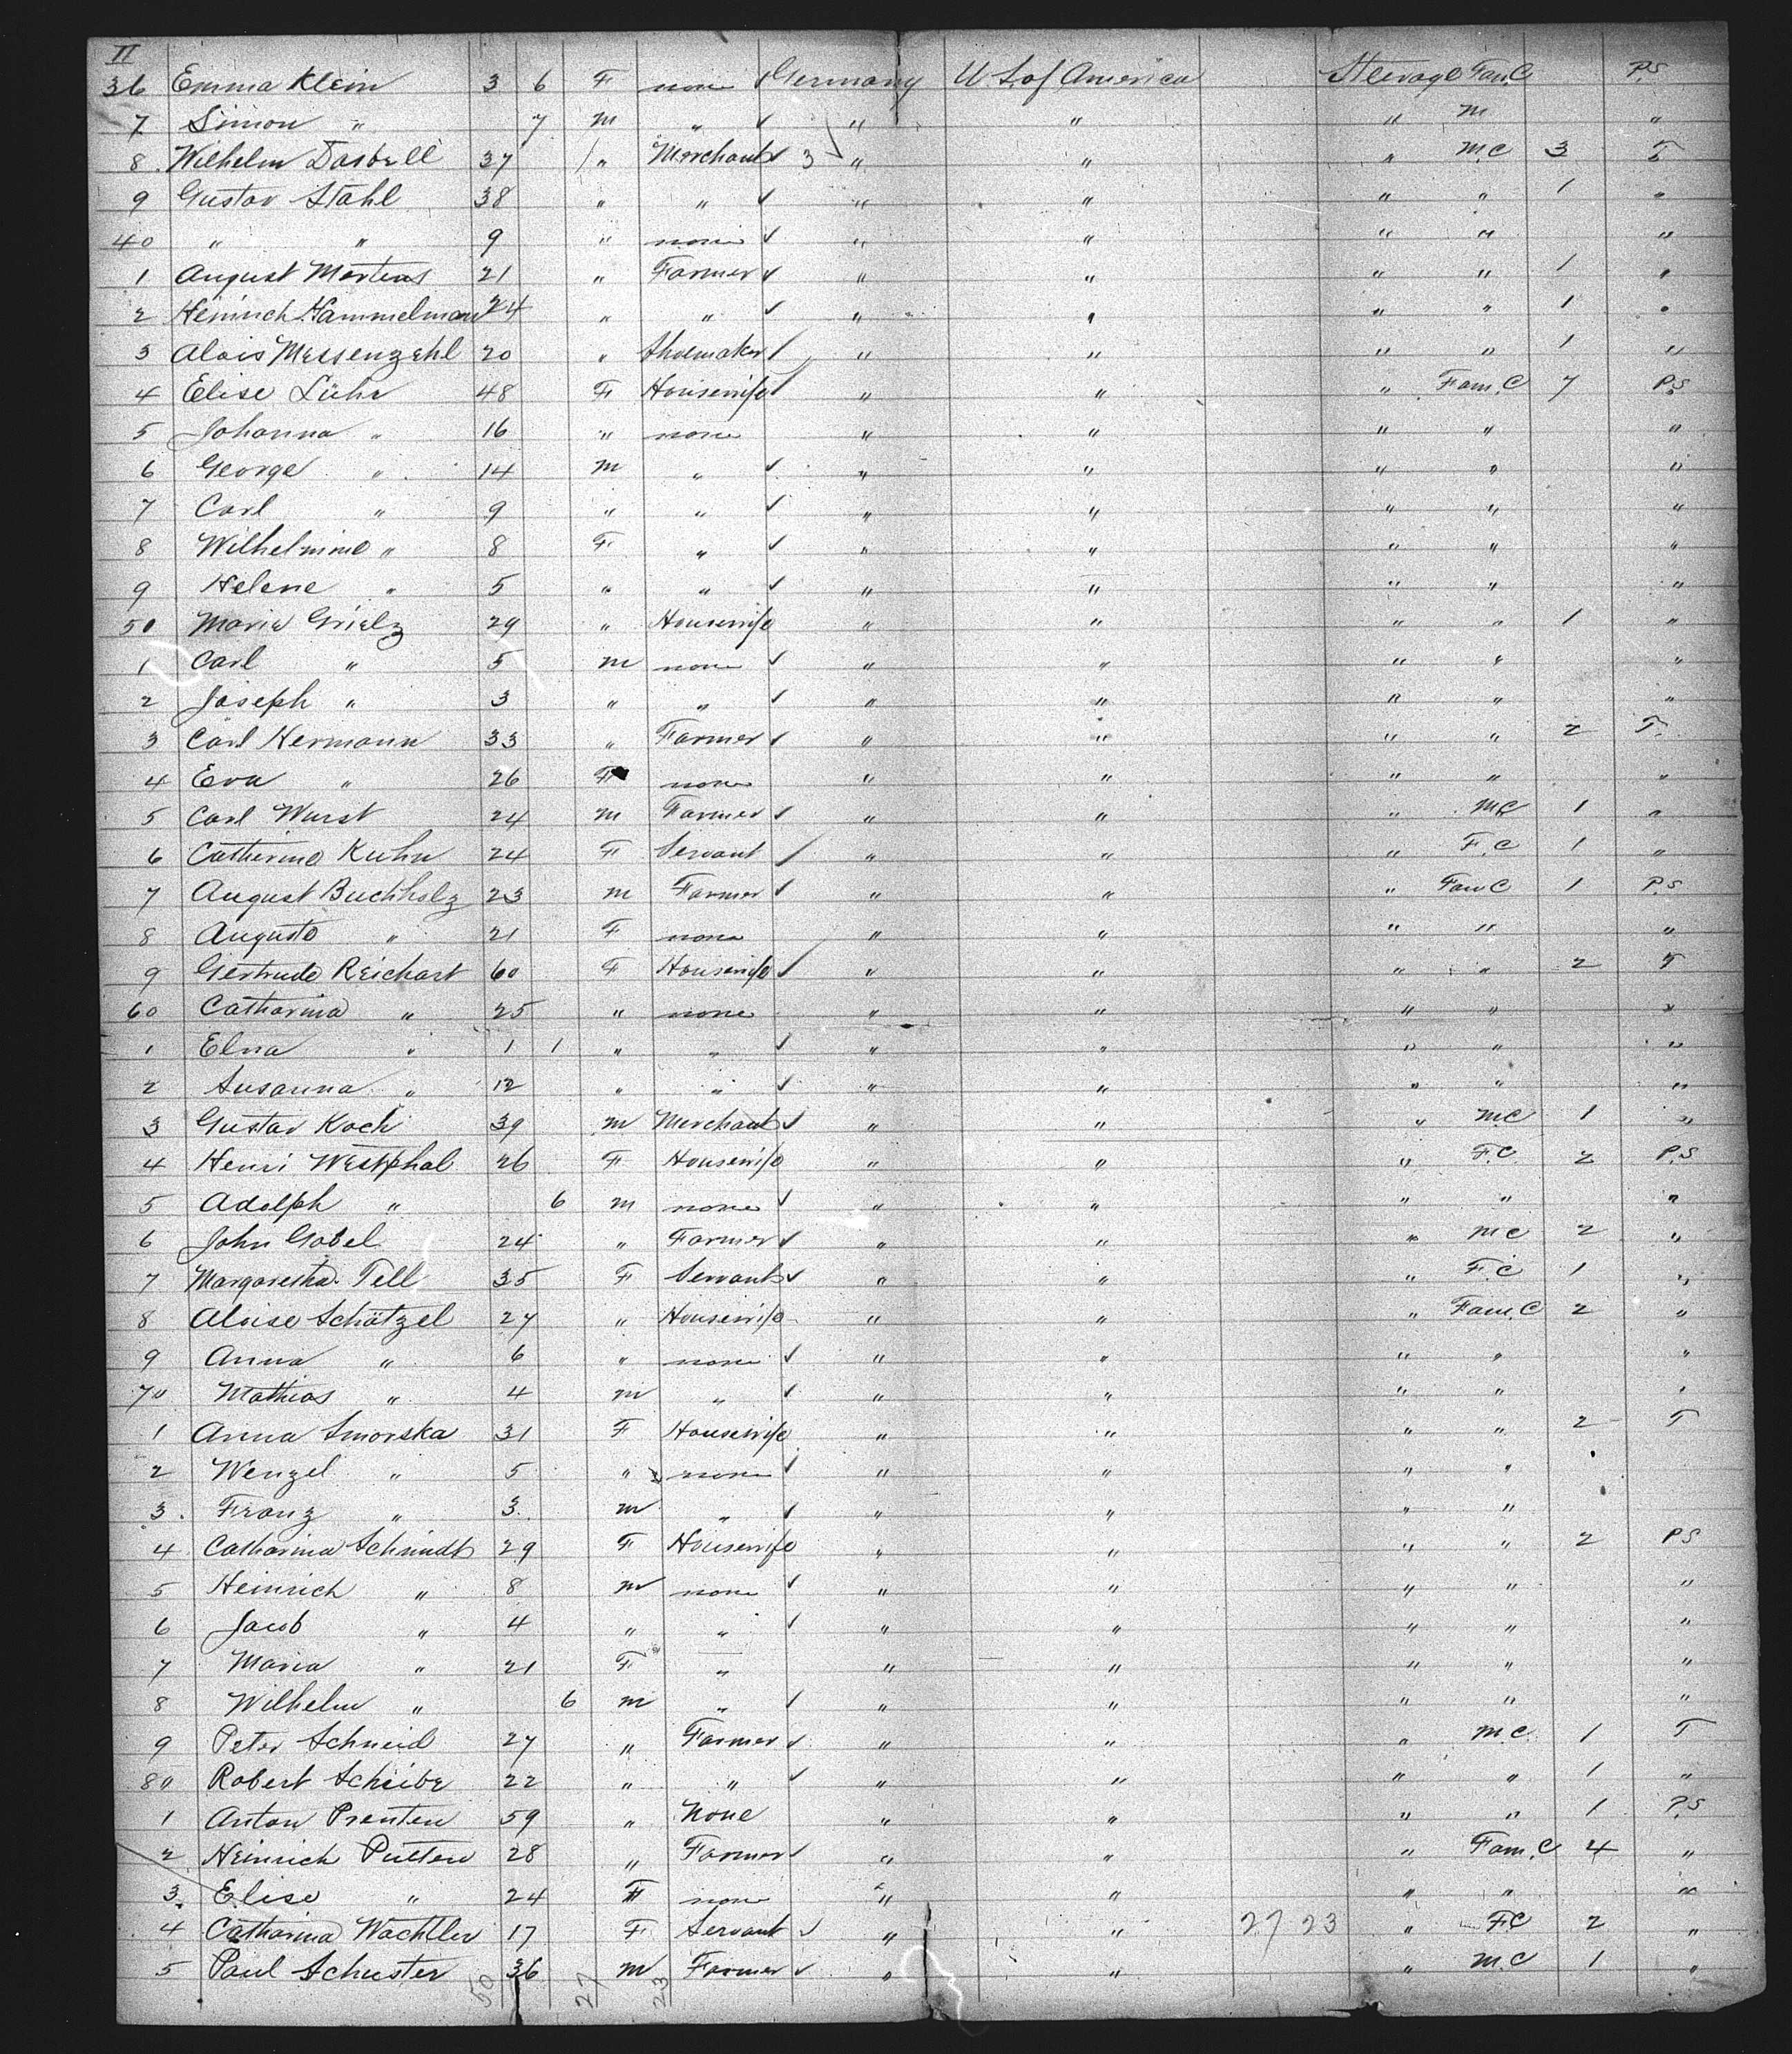 II
36 Emma Klein 3 6 F none ✓ Germany U. S. of America Steerage Fam. C P.S
7 Simon " 7 m " ✓ " " " M "
8 Wilhelm 37 " Merchant ✓ 3 " " " M.C 3 T
9 Gustav Stahl 38 " " ✓ " " " " 1 "
40 " " 9 " none ✓ " " " " "
1 August Mertens 21 " Farmer ✓ " " " " 1 "
2 Heinrich Hammelman 24 " " ✓ " " " " 1 "
3 Alois Messenzehl 20 " Shoemaker ✓ " " " " 1 "
4 Elise Lühr 48 F Housewife ✓ " " " Fam. C 7 P.S
5 Johanna " 16 " none " " " " "
6 George " 14 m " ✓ " " " " "
7 Carl " 9 " " ✓ " " " " "
8 Wilhelmine " 8 F " ✓ " " " " "
9 Helene " 5 " " ✓ " " " " "
50 Marie Grielz 29 " Housewife " " " " 1 "
1 Carl " 5 m none ✓ " " " " "
2 Joseph " 3 " " ✓ " " " " "
3 Carl Hermann 33 " Farmer ✓ " " " " 2 T.
4 Eva " 26 F none " " " " "
5 Carl Wurst 24 m Farmer ✓ " " " M.C 1 "
6 Catherine Kuhn 24 F Servant ✓ " " " F.C 1 "
7 August Buchholz 23 m Farmer ✓ " " " Fam C 1 P.S
8 Auguste " 21 F none " " " " "
9 Gertrude Reichart 60 F Housewife ✓ " " " " 2 T
60 Catharina " 25 " none " " " " "
1 Elna " 1 1 " " ✓ " " " " "
2 Susanna " 12 " " ✓ " " " " "
3 Gustav Koch 39 m Merchant ✓ " " " M C 1 "
4 Henri Westphal 26 F Housewife " " " F.C. 2 P.S
5 Adolph " 6 m none ✓ " " " " "
6 John Gobel 24 " Farmer ✓ " " " M C 2 "
7 Margaretha Tell 35 F Servant ✓ " " " F.C 1 "
8 Aloise Schätzel 27 " Housewife " " " Fam. C 2 "
9 Anna " 6 " none ✓ " " " " "
70 Mathias " 4 m " ✓ " " " " "
1 Anna Smorska 31 F Housewife " " " " 2 T
2 Wenzel " 5 " none ✓ " " " "
3 Franz " 3 m " ✓ " " " "
4 Catharina Schmidt 29 F Housewife " " " " 2 P S
5 Heinrich " 8 m none ✓ " " " " "
6 Jacob " 4 " " ✓ " " " " "
7 Maria " 21 F " " " " " "
8 Wilhelm " 6 m " ✓ " " " " "
9 Peter Schneid 27 " Farmer ✓ " " " M.C. 1 T
80 Robert Scheibe 22 " " ✓ " " " " 1 "
1 Anton Prenten 59 " None " " " " 1 P.S
2 Heinrich Putten 28 " Farmer ✓ " " " Fam. C 4 "
3 Elise " 24 F none " " " " "
4 Catharina Wachtler 17 F Servant ✓ " " 27 23 " F.C 2 "
5 Paul Schuster 36 m Farmer ✓ " " " M.C 1 "
50 27 23